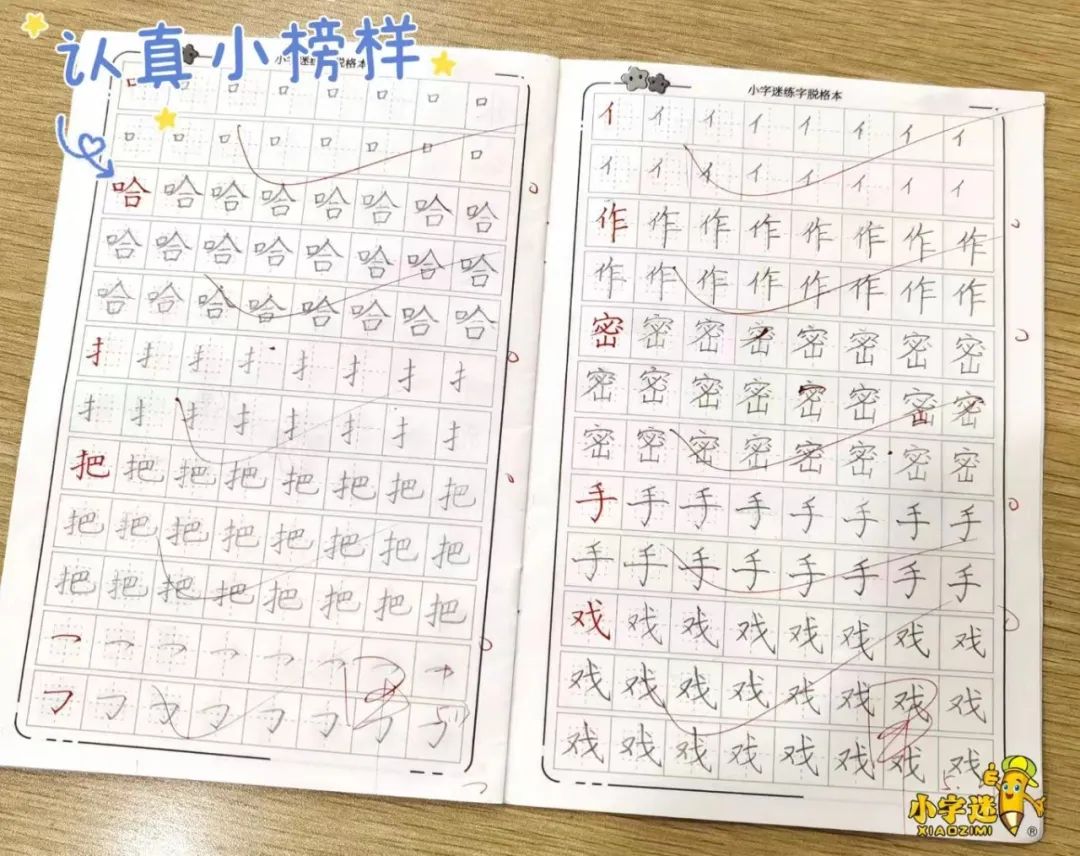 认真小榜样
小字迷练字脱格本
口 口 口 口 口 口 口 口
口 口 口 口 口 口 口 口
哈 哈 哈 哈 哈 哈 哈 哈
哈 哈 哈 哈 哈 哈 哈 哈
哈 哈 哈 哈 哈 哈 哈 哈
扌 扌 扌 扌 扌 扌 扌 扌
扌 扌 扌 扌 扌 扌 扌 扌
把 把 把 把 把 把 把 把
把 把 把 把 把 把 把 把
把 把 把 把 把 把 把 把
小字迷练字脱格本
亻 亻 亻 亻 亻 亻 亻 亻
亻 亻 亻 亻 亻 亻 亻 亻
作 作 作 作 作 作 作 作
作 作 作 作 作 作 作 作
密 密 密 密 密 密 密 密
密 密 密 密 密 密 密 密
密 密 密 密 密 密 密 密
手 手 手 手 手 手 手 手
手 手 手 手 手 手 手 手
戏 戏 戏 戏 戏 戏 戏 戏
戏 戏 戏 戏 戏 戏 戏 戏
戏 戏 戏 戏 戏 戏 戏 戏
小字迷
XIAOZIMI®